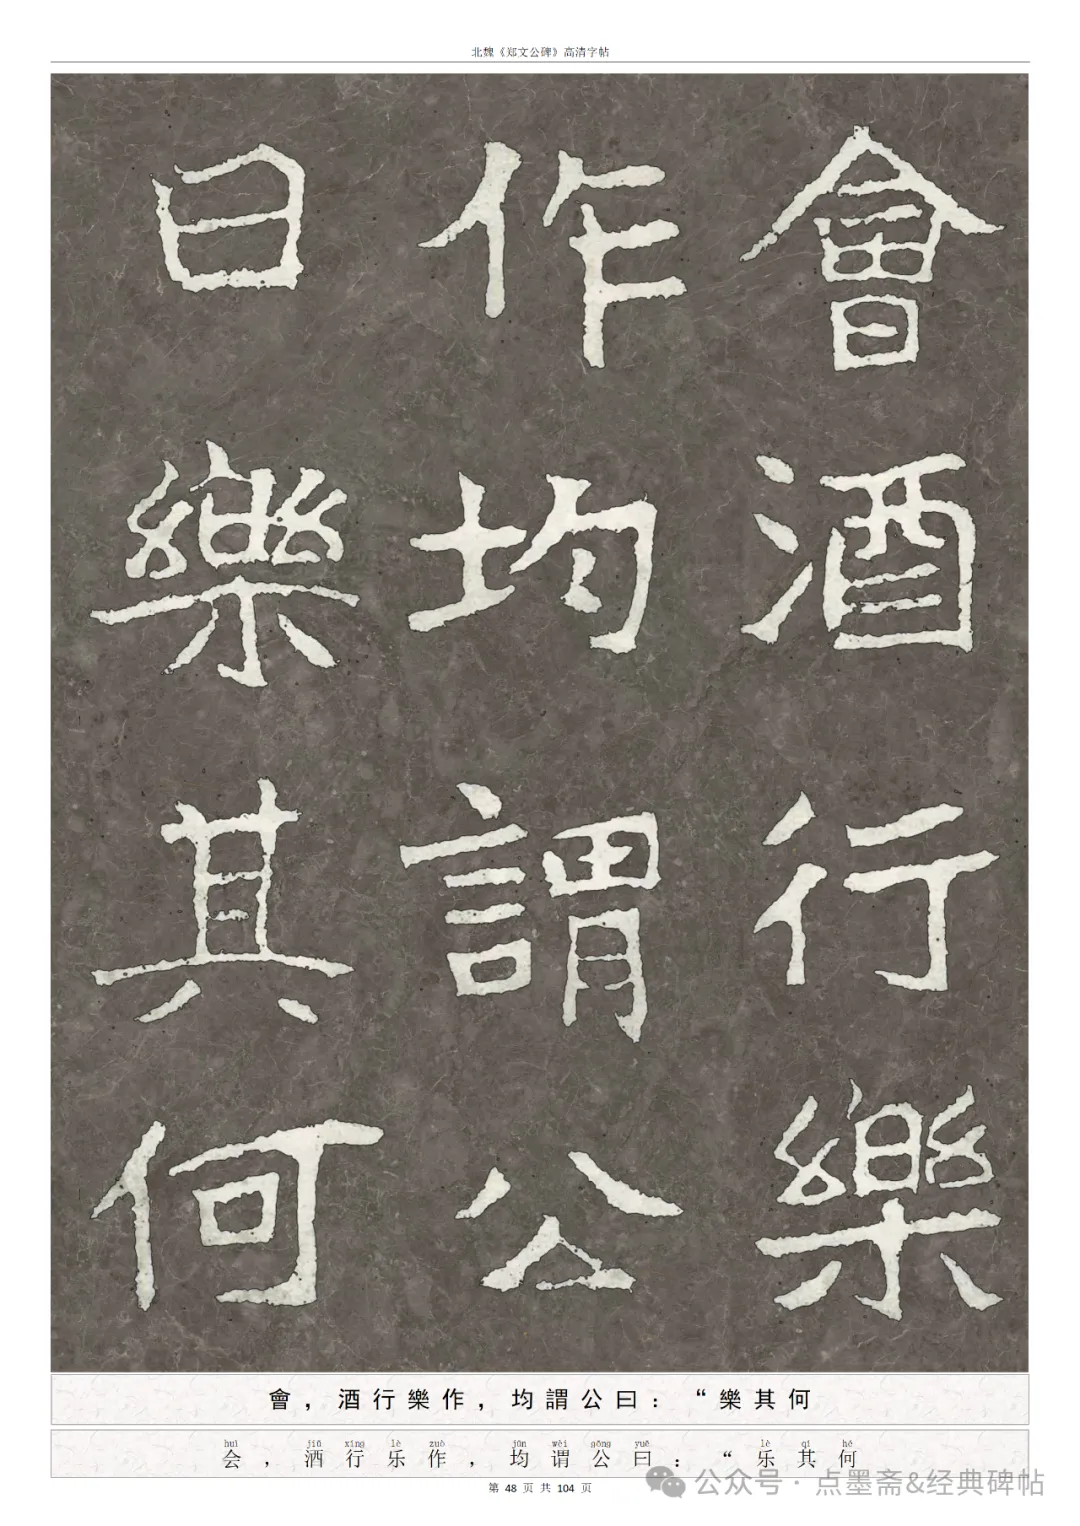 北魏《郑文公碑》高清字帖
會酒行樂
作均謂公
曰樂其何
會，酒行樂作，均謂公曰：“樂其何
huì jiǔ xíng lè zuò jūn wèi gōng yuē lè qí hé
会，酒行乐作，均谓公曰：“乐其何
第 48 页 共 104 页
公众号 · 点墨斋&经典碑帖